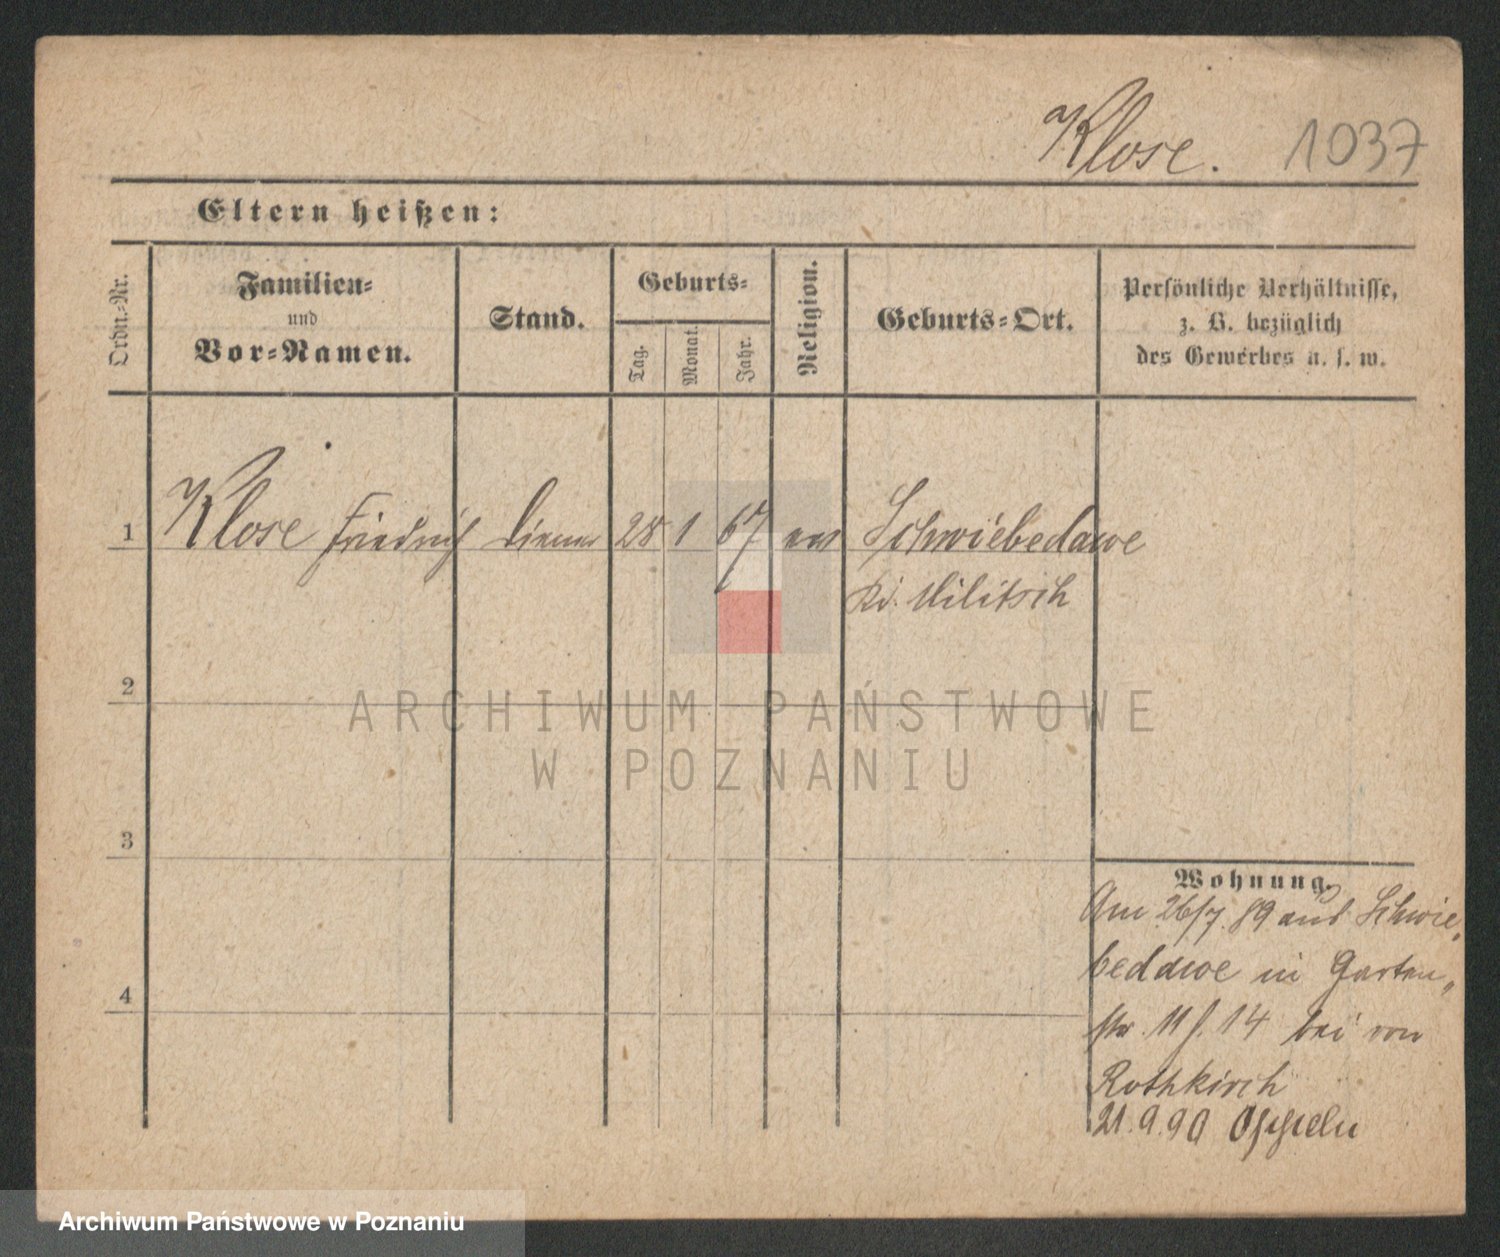 Klose. 1037
Eltern heißen:
Ordn.-Nr.
Familien-
und
Vor-Namen.
Stand.
Geburts-
Tag.
Monat.
Jahr.
Religion.
Geburts-Ort.
Persönliche Verhältnisse,
z. B. bezüglich
des Gewerbes u. s. w.
1 Klose Friedrich Diener 28 1 67 ev Schwiebedawe
Kr. Militsch
2
ARCHIWUM PAŃSTWOWE
W POZNANIU
3
Wohnung.
Am 26/7. 89 aus Schwie„
bedawe in Garten„
4
str. 11 f. 14 bei von
Rothkirch
21.9.90 Oppeln
Archiwum Państwowe w Poznaniu